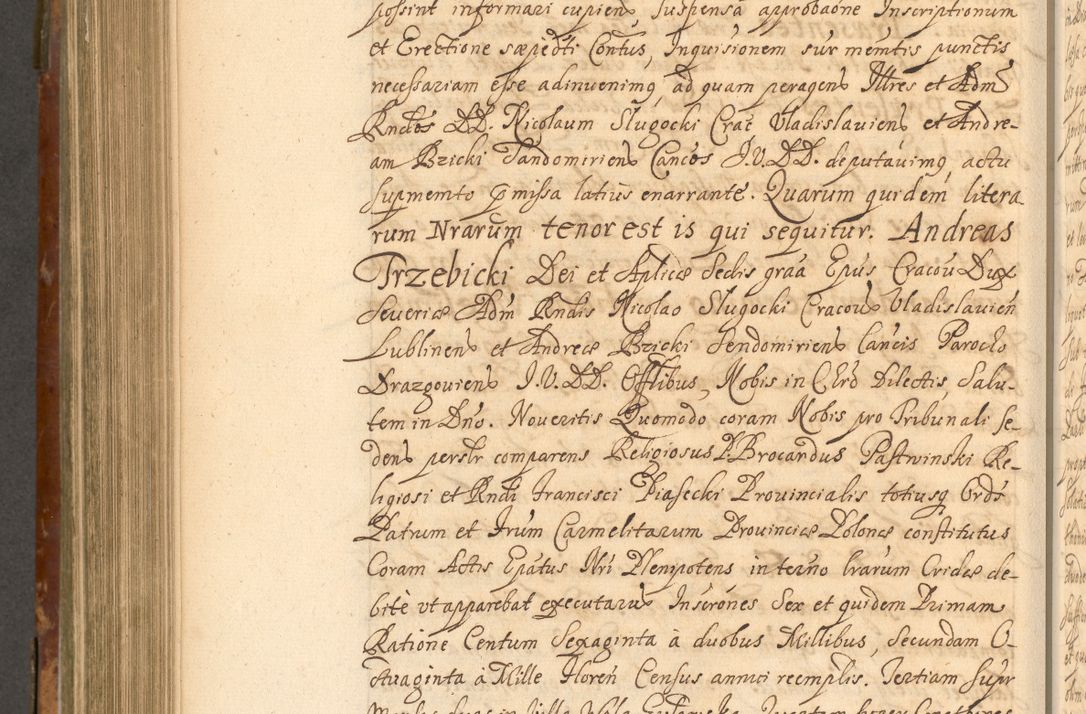 possint informari cupiens Suspensa approbaone Inscriptionum
et Erectione sæpedti Contus, Inquisionem sur memtis punctis
necessariam esse adinvenimq ad quam peragens Illres et Adm
Rndos DD. Nicolaum Slugocki Crac Vladislauiens et Andre-
am Bzicki Sandomiriens Cancos J.V.DD. deputauimq actu
suprmemto p missa latius enarrante. Quarum quidem litera
rum Nrarum tenor est is qui sequitur. Andreas
Trzebicki Dei et Aplicæ Sedis graa Epus Cracou Dux
Seueriæ Adm Rndis Nicolao Slugocki Cracous Vladislauien
Lublinens et Andreæ Bzicki Sendomiriens Cancis Parocho
Drazgouiens J.V.DD. Offlibus, Nobis in Chro Dilectis Salu-
tem in Dno. Noueritis Quomodo coram Nobis pro Tribunali se-
dens perslr comparens Religiosus P. Brocardus Pastwinski Re-
ligiosi et Rndi Francisci Piasecki Prouincialis totiusq Ords
Patrum et Frum Carmelitarum Prouinciæ Polonæ constitutus
Coram Actis Epatus Nri Plenipotens interno lrarum Cridæ de-
bitè vt apparebat executarus Inscrones Sex et quidem Primam
Ratione Centum Sexaginta à duobus Millibus, Secundam O-
ctuaginta à Mille Floren Census annui reemplis. Tertiam Supr